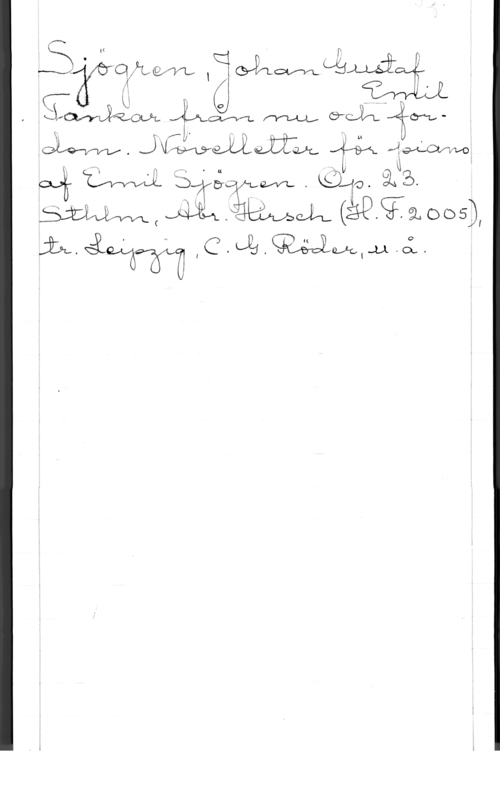 Sjögren, Johan Gustaf
Emil
Tankar från nu och for-
dom. Novelletter för piano
af Emil Sjögren. Op. 23.
Sthlm, Abr. Hirsch (H. F. 2005),
tr. Leipzig, C. G. Röder, u. å.